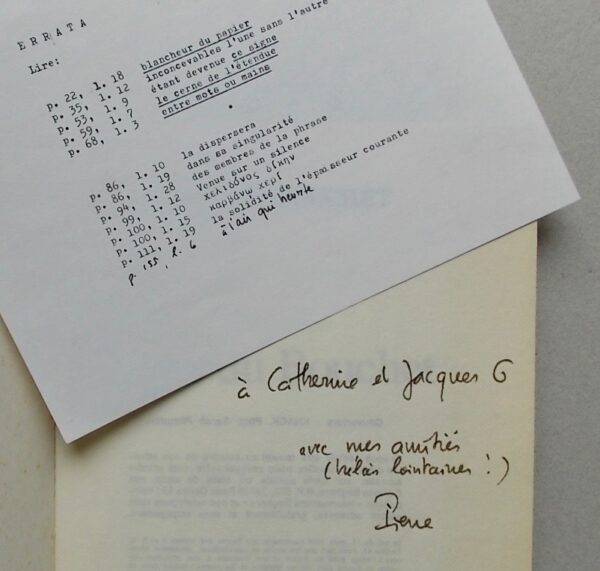 ERRATA
Lire:
p. 22, l. 18 blancheur du papier
p. 35, l. 12 inconcevables l'une sans l'autre
p. 53, l. 9 étant devenue ce signe
p. 59, l. 7 le cerne de l'étendue
p. 68, l. 3 entre mots ou mains
p. 86, l. 10 la dispersera
p. 86, l. 19 dans sa singularité
p. 94, l. 28 des membres de la phrase
p. 99, l. 12 Venue sur un silence
p. 100, l. 10 χελιδόνος δίκην
p. 100, l. 15 καρβάνω χερί
p. 111, l. 19 la solidité de l'épaisseur courante
p. 155, l. 6 à l'air qui heurte
à Catherine et Jacques G
avec mes amitiés
(hélas lointaines !)
Pierre